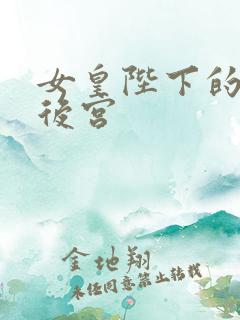 女皇陛下的
後宫
金地翔
未经同意禁止转载